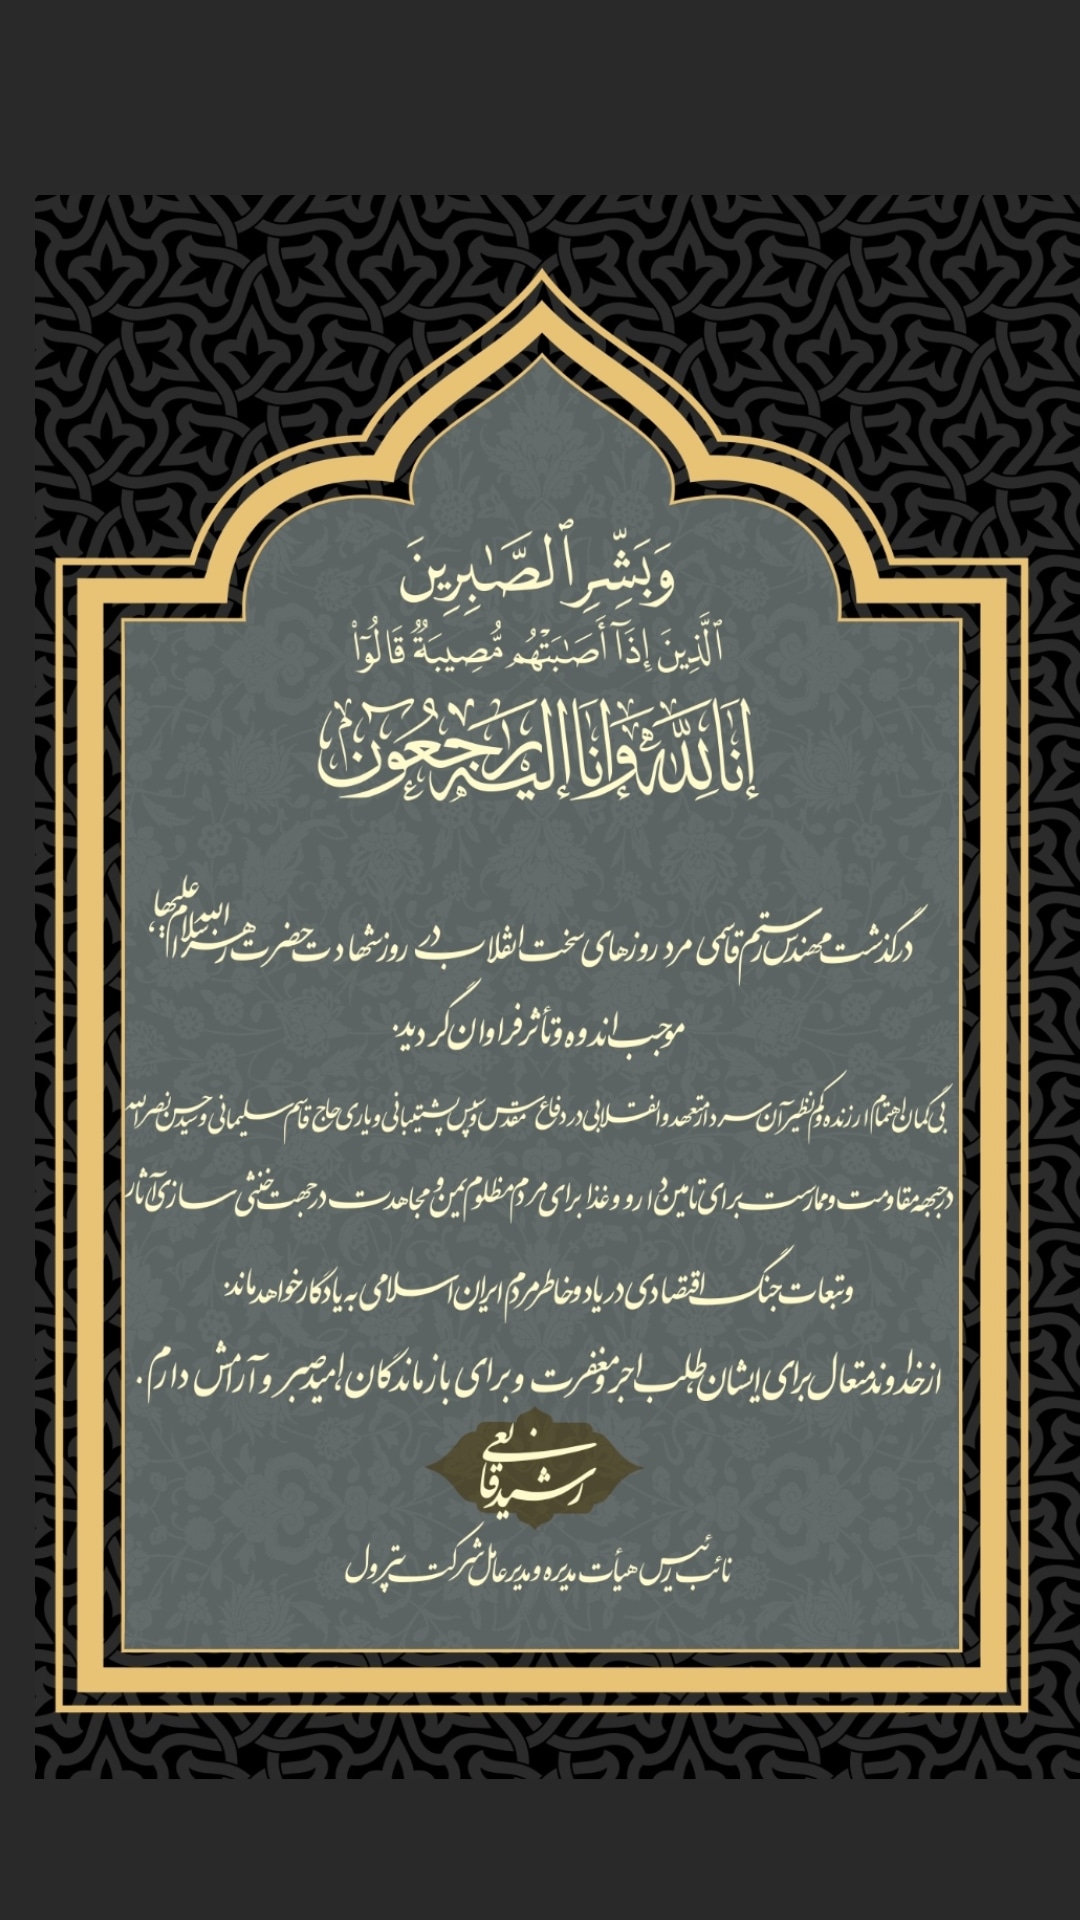 وَبَشِّرِ ٱلصَّـٰبِرِينَ
ٱلَّذِينَ إِذَآ أَصَـٰبَتْهُم مُّصِيبَةٌ قَالُوٓا۟
إِنَّا لِلَّهِ وَإِنَّا إِلَيْهِ رَاجِعُونَ
درگذشت مهندس رستم قاسمی مرد روزهای سخت انقلاب در روز شهادت حضرت زهرا سلام الله علیها،
موجب اندوه و تأثر فراوان گردید.
بی گمان اهتمام ارزنده و کم نظیر آن سردار متعهد و انقلابی در دفاع مقدس و سپس پشتیبانی و یاری حاج قاسم سلیمانی و سید حسن نصرالله
در جبهه مقاومت و ممارست برای تامین دارو و غذا برای مردم مظلوم یمن و مجاهدت در جهت خنثی سازی آثار
و تبعات جنگ اقتصادی در یاد و خاطر مردم ایران اسلامی به یادگار خواهد ماند.
از خداوند متعال برای ایشان طلب اجر و مغفرت و برای بازماندگان امید صبر و آرامش دارم.
رشید قانعی
نائب رئیس هیأت مدیره و مدیرعامل شرکت پترول